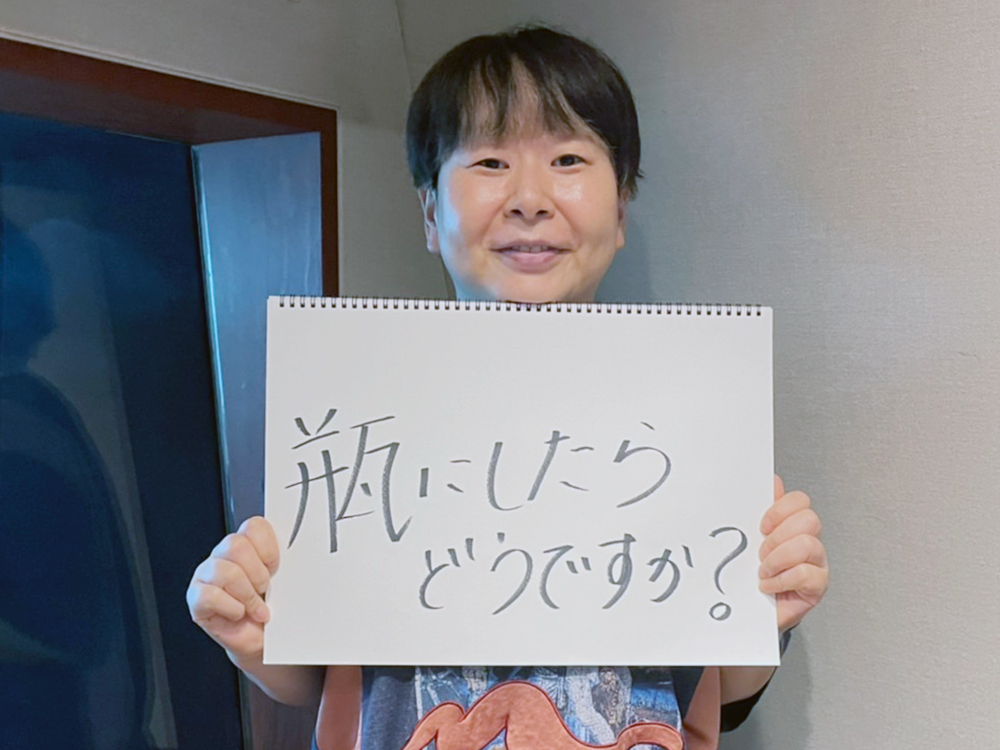 瓶にしたら
どうですか?